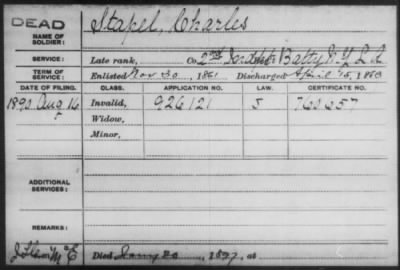 DEAD
NAME OF SOLDIER: Stapel, Charles
SERVICE: Late rank, Co. 2nd Batty N.Y. L. A.
TERM OF SERVICE: Enlisted Nov 30, 1861 Discharged April 15, 1863
DATE OF FILING. CLASS. APPLICATION NO. LAW. CERTIFICATE NO.
1890 Aug 16 Invalid, 926121 J 765657
Widow,
Minor,
ADDITIONAL SERVICES:
REMARKS:
Died Jany 20, 1897, at